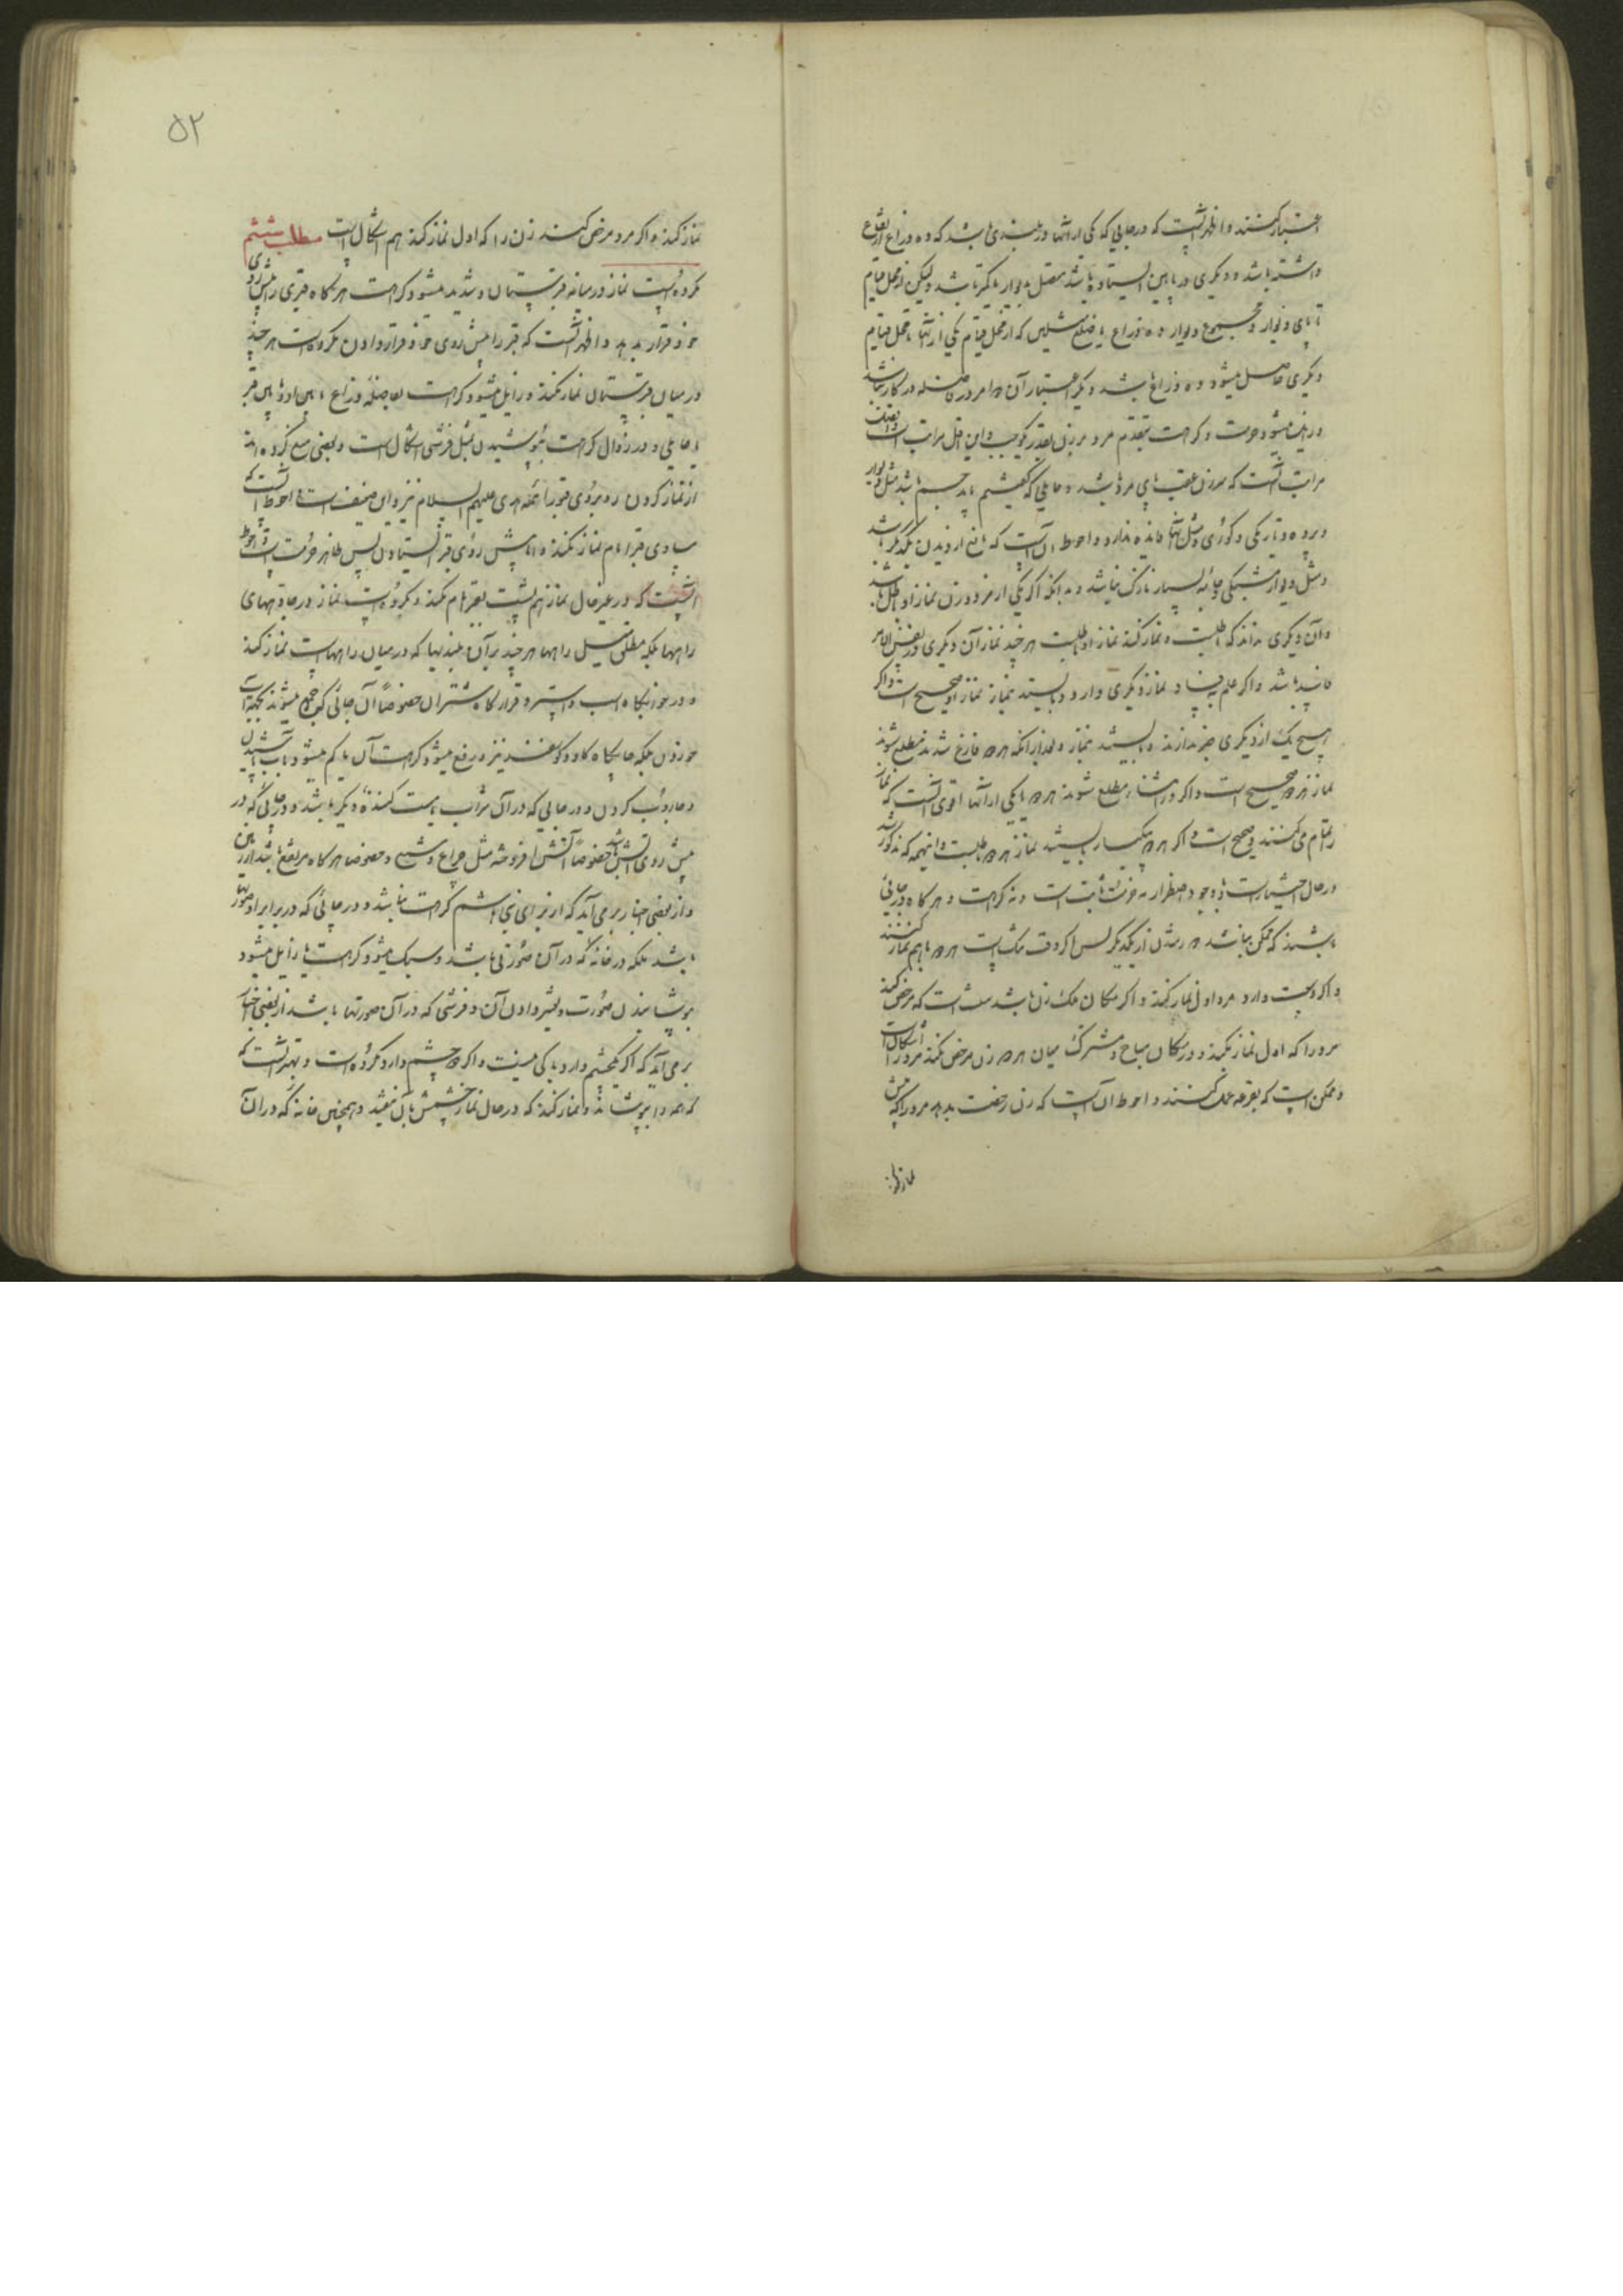 اعتبار کنند و اظهر آنست که در جایی که یکی از آنها در بلندی باشد که ده ذراع ارتفاع
داشته باشد و دیگری در پایین ایستاده باشد متصل بدیوار یا کمتر باشد ولیکن از محل قیام
تا پای دیوار و مجموع دیوار ده ذراع یا ضلع مثلثی که از محل قیام یکی از آنها تا محل قیام
دیگری حاصل میشود ده ذراع باشد دیگر اعتبار آن دو امر در فاصله در کار نباشد
و زایل میشود حرمت و کراهت بتقدم مرد بر زن بقدر یک وجب و این اقل مراتب است و افضل
مراتب آنست که سر زن عقب پای مرد باشد و حایلی که گفتیم باید جسم باشد مثل دیوار
و پرده و تاریکی و کوری و مثل آنها فایده ندارد و احوط آن است که مانع از دیدن یکدیگر باشد
و مثل دیوار مشبکی و جامه بسیار نازک نباشد و بدانکه اگر یکی از مرد و زن نماز او باطل باشد
و آن دیگری بداند که باطلست و نماز کند نماز او باطلست هر چند نماز آن دیگری در نفس الامر
فاسد باشد و اگر علم بفساد نماز دیگری دارد و بایستد بنماز نماز او صحیح است و اگر
هیچ یک از دیگری خبر ندارند و بایستند بنماز و بعد از آنکه هر دو فارغ شدند مطلع شوند
نماز هر دو صحیح است و اگر در اثنا مطلع شوند هر دو یا یکی از آنها اقوی آنست که نماز
را تمام می کنند و صحیح است و اگر هر دو بیکبار بایستند نماز هر دو باطلست و اینهمه که مذکور شد
در حال اختیار است و با وجود اضطرار نه حرمت ثابت است و نه کراهت و هر گاه در جایی
باشند که ممکن نباشد دور شدن از یکدیگر پس اگر وقت تنگ است هر دو با هم نماز کنند
و اگر وسعت دارد مرد اول نماز بکند و اگر مکان ملک زن باشد سنت است که مرخص کند
مرد را که اول نماز بکند و در مکان مباح و مشترک میان هر دو زن مرخص نکند مرد را اشکال است
و ممکن است که بقرعه عمل کنند و احوط آن است که زن رخصت بدهد مرد را که پیش
نماز کند
۵۲
نماز کند و اگر مرد مرخص کند زن را که اول نماز کند هم اشکال است مطلب ششم
مکروه است نماز در میانه قبرستان و شدید میشود کراهت هر گاه قبری را پیش روی
خود قرار بدهد و اظهر آنست که قبر را پیش روی خود قرار دادن مکروه است هر چند
در میان قبرستان نماز نکند و زایل میشود کراهت بفاصله ذراع ما بین او و ما بین قبر
یا حایلی و در زوال کراهت بپوشیدن بمثل فرشی اشکال است و بعضی منع کرده اند
از نماز کردن رو بروی قبور ائمه هدی علیهم السلام نیز و این ضعیف است و احوط آنست که
مساوی قبر امام نماز نکند و اما پیش روی قبر ایستادن پس ظاهر حرمت است و احوط
آنست که در غیر حال نماز هم پشت بقبر امام نکند و مکروه است نماز در جاده های
راهها بلکه مطلق سبیل راهها هر چند بر آن بلندیها که در میان راههاست نماز کند
و در خوابگاه اسب و استر و قرار گاه شتران خصوصا آن جائی که جمع میشوند بجهة آب
خوردن بلکه جایگاه گاو و گوسفند نیز و رفع میشود کراهت آن یا کم میشود بآب پاشیدن
و جاروب کردن و در جایی که در آن شراب یا مست کننده دیگر باشد و در جائی که در
پیش روی آتش باشد خصوصا آتش افروخته مثل چراغ و شمع و خصوصا هر گاه مرتفع باشد از زمین
و از بعضی اخبار بر می آید که از برای بنی هاشم کراهت نباشد و در جائی که در برابر او صورتها
باشد بلکه در خانه که در آن صورتی باشد و سبک میشود کراهت یا زایل میشود
بپوشانیدن صورت و تغییر دادن آن و فرشی که در آن صورتها باشد از بعضی اخبار
بر می آید که اگر یکچشم دارد باکی نیست و اگر دو چشم دارد مکروه است و بهتر آنست که
که همه را بپوشاند و نماز کند که در حال نماز چشمش بآن نیفتد و همچنین خانه که در آن